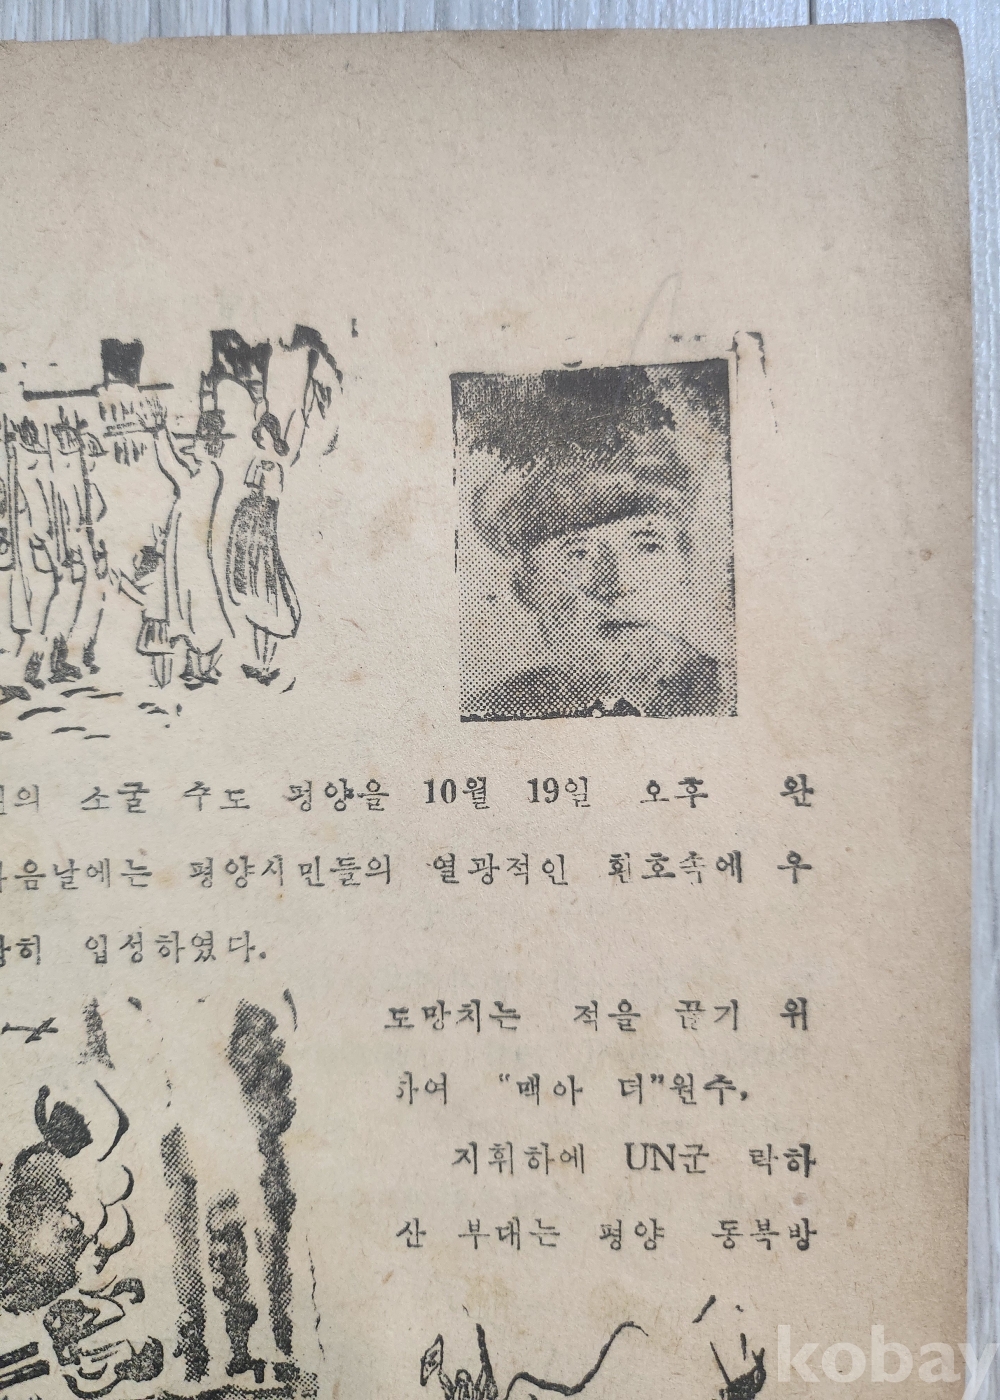 의 소굴 수도 평양을 10월 19일 오후 완
음날에는 평양시민들의 열광적인 환호속에 우
히 입성하였다.
도망치는 적을 끊기 위
하여 “맥아 더”원수,
지휘하에 UN군 락하
산 부대는 평양 동북방
kobay